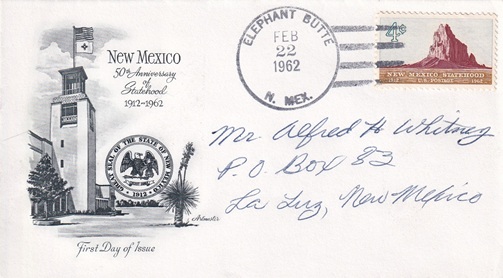 New Mexico
50th Anniversary
of
Statehood
1912-1962
GREAT SEAL OF THE STATE OF NEW MEXICO
1912
Artmaster
First Day of Issue
ELEPHANT BUTTE
FEB
22
1962
N. MEX.
4¢
NEW MEXICO STATEHOOD
1912 U.S. POSTAGE 1962
Mr Alfred H Whitney
P.O. Box 83
La Luz, New Mexico